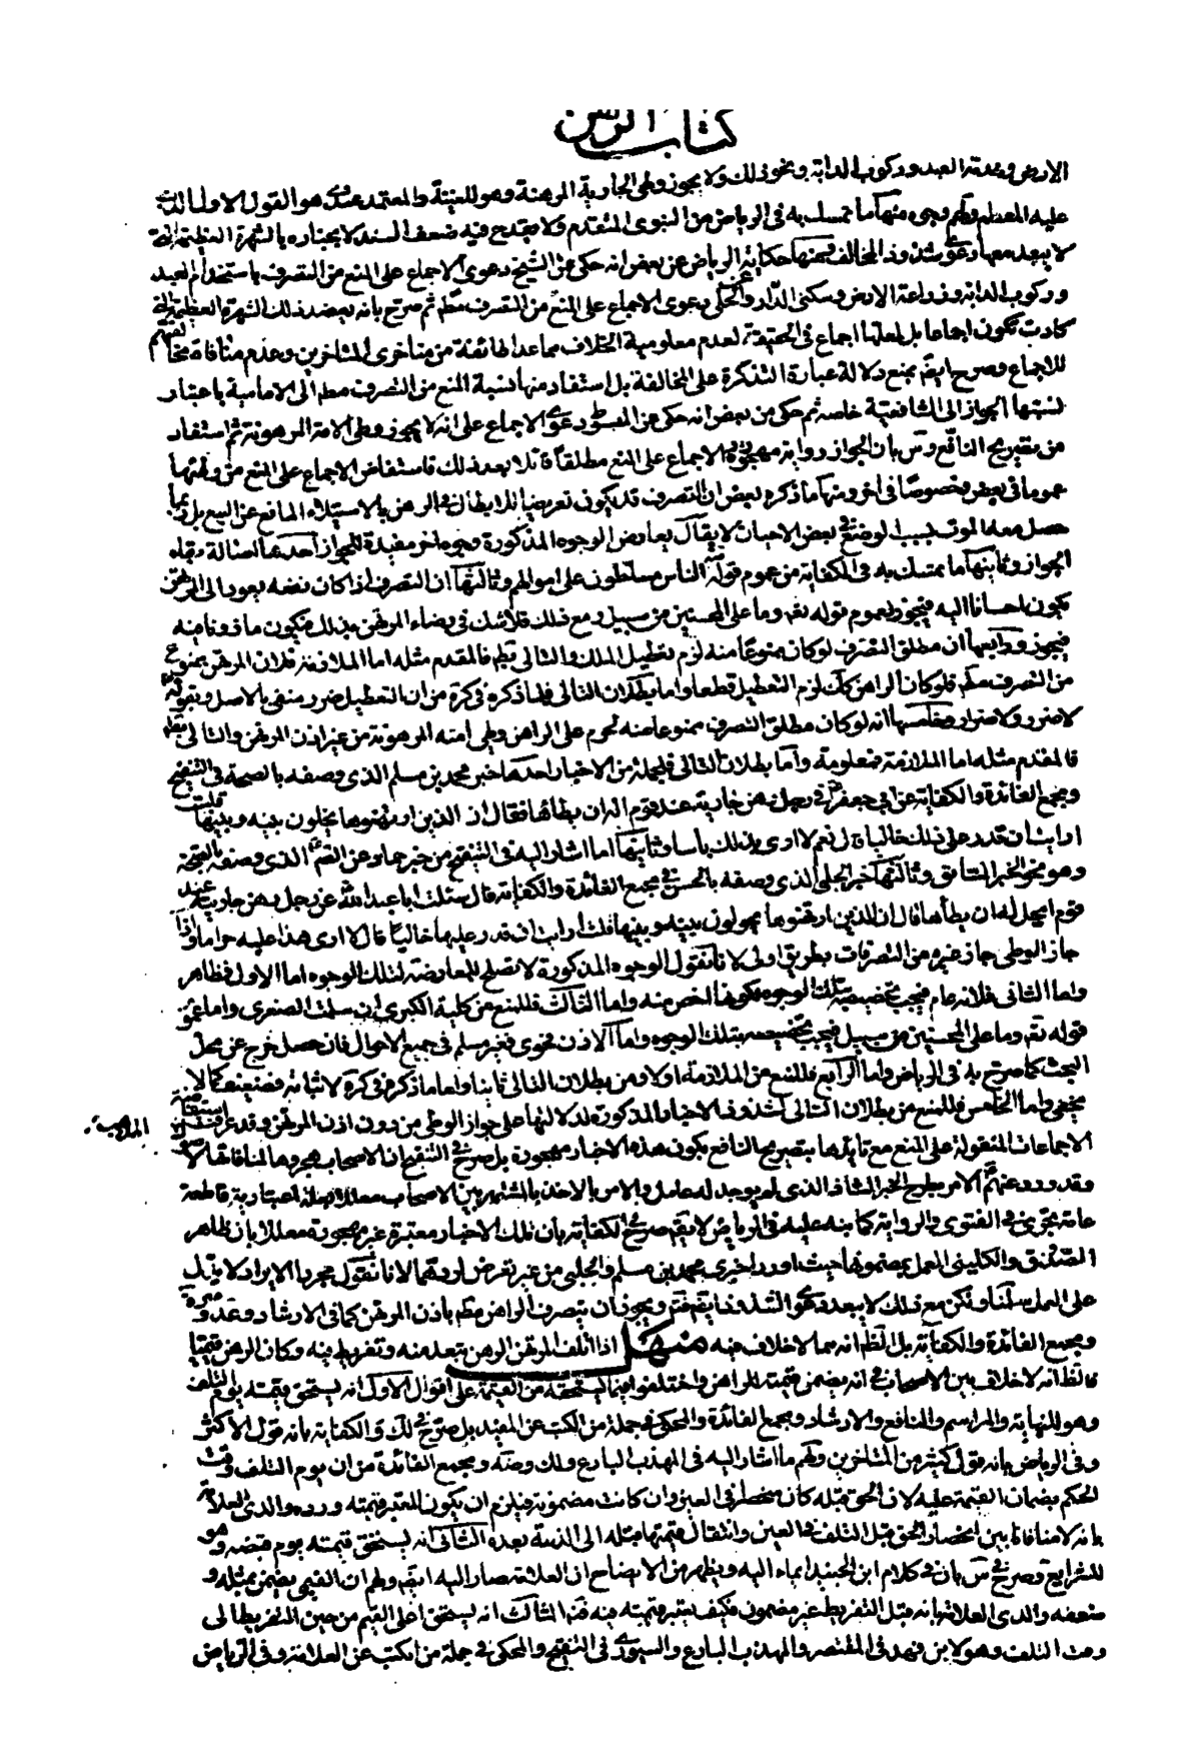 كتاب الرهن
الارض وخدمة العبد وركوب الدابة ونحو ذلك ولا يجوز وطي الجارية المرهنة وهو للغنية والمعتمد عندى هو القول الاول الذى
عليه المعظم ولهم وجوه منها ما تمسك به فى الرياض من النبوى المتقدم ولا يقدح فيه ضعف السند لانجباره بالشهرة العظيمة التى
لا يبعد معها دعوى شذوذ المخالف ومنها حكاية الرياض عن بعض انه حكى عن الشيخ دعوى الاجماع على المنع من التصرف باستخدام العبد
وركوب الدابة وزراعة الارض وسكنى الدار و الحلى دعوى الاجماع على المنع من التصرف مطم ثم صرح بانه يعضد ذلك الشهرة العظيمة التى
كادت تكون اجماعا بل لعلها اجماع فى الحقيقة لعدم معلومية الخلاف مما عدا طائفة من متاخرى المتاخرين وعدم منافاة مخالفتهم
للاجماع وصرح ايضا بمنع دلالة عبارة التذكرة على المخالفة بل استفاد منها نسبة المنع من التصرف مطم الى الامامية باعتبار
نسبتها الجواز الى الشافعية خاصه ثم حكى من بعض انه حكى عن المبسوط دعوى الاجماع على انه لا يجوز وطى الامة المرهونة ثم استفاد
من تصريح النافع و بان الجواز رواية مهجورة الاجماع على المنع مطلقا قائلا بعد ذلك فاستفاض الاجماع على المنع من وطئها
عموما فى بعض وخصوصا فى اخر ومنها ما ذكره بعض ان التصرف قد يكون تعريضا للابطال فى الرهن بالاستيلاء المانع عن البيع بل ربما
حصل معه الموت بسبب الوضع فى بعض الاحيان لا يقال يعارض الوجوه المذكورة وجوه اخر مفيدة للجواز احدها اصالة بقاء
الجواز وثانيها ما تمسك به فى الكفاية من عموم قوله الناس مسلطون على اموالهم وثالثها ان التصرف اذا كان نفعه يعود الى الرهن
يكون احسانا اليه فيجوز لعموم قوله تعه وما على المحسنين من سبيل ومع ذلك فلا شك فى رضاء المرتهن بذلك فيكون ماذونا منه
فيجوز ورابعها ان مطلق التصرف لو كان ممنوعا منه لزم تعطيل الملك والتالى بطم فالمقدم مثله اما الملازمة فلان المرتهن ممنوع
من التصرف مطم فلو كان الراهن كك لزم التعطيل قطعا واما بطلان التالى فلما ذكره فى كرة من ان التعطيل ضرر منفى بالاصل وبقوله
لا ضرر ولا ضرار وخامسها انه لو كان مطلق التصرف ممنوعا منه لحرم على الراهن وطى امته المرهونة من غير اذن المرتهن والتالى بطم
فالمقدم مثله اما الملازمة فمعلومة واما بطلان التالى فلجملة من الاخبار احدها خبر محمد بن مسلم الذى وصفه بالصحة فى التنقيح
ومجمع الفائدة والكفاية عن ابى جعفر فى رجل رهن جارية عند قوم اله ان يطاها فقال ان الذين ارتهنوها يحولون بينه وبينها قلت
ارايت ان قدر على ذلك خاليا قال نعم لا ارى بذلك باسا وثانيها ما اشار اليه فى التنقيح من خبر حماد عن الصم الذى وصفه بالصحة
وهو نحو الخبر السابق وثالثها خبر الحلبى الذى وصفه بالحسن فى مجمع الفائدة والكفاية قال سئلت ابا عبد الله عن رجل رهن جاريته عند
قوم ايحل له ان يطأها قال ان الذين ارتهنوها يحولون بينه وبينها قلت ارايت ان قدر عليها خاليا قال لا ارى هذا عليه حراما واذا
جاز الوطى جاز غيره من التصرفات بطريق اولى لانا نقول الوجوه المذكورة لا تصلح للمعارضة لتلك الوجوه اما الاول فظاهر
واما الثانى فلانه عام فيجب تخصيصه بتلك الوجوه لكونها اخص منه واما الثالث فللمنع من كلية الكبرى ان سلمت الصغرى واما عموم
قوله تعه وما على المحسنين من سبيل فيجب تخصيصه بتلك الوجوه واما الاذن فحوى فغير مسلم فى جميع الاحوال فان حصل خرج عن محل
البحث كما صرح به فى الرياض واما الرابع فللمنع من الملازمة اولا ومن بطلان التالى ثانيا واما ما ذكره فى كرة لاثباته فضعيف كما لا
يخفى واما الخامس فللمنع من بطلان التالى لشذوذ الاخبار المذكورة لدلالتها على جواز الوطى من دون اذن المرتهن وقد عرفت استفاضة
الاجماعات المنقولة على المنع مع تايدها بتصريح النافع بكون هذه الاخبار مهجورة بل صرح فى التنقيح ان الاصحاب هجروها لمنافاتها
وقد ورد عنهم الامر بطرح الخبر الشاذ الذى لم يوجد له عامل والامر بالاخذ بالمشتهر بين الاصحاب معللا اعتبارية قاطعة
عامة تجرى فى الفتوى والرواية كما نبه عليه فى الرياض لا يقم صرح الكفاية بان تلك الاخبار معتبرة غير مهجورة معللا بان ظاهر
الصدوق والكلينى العمل بمضمونها حيث اورد اخبرى محمد بن مسلم والحلبى من غير تعرض لردهما لانا نقول مجرد الايراد لا يدل
على العمل سلمنا ولكن مع ذلك لا يبعد دعوى الشذوذ ايضم فتم ويجوز ان يتصرف الراهن مطم باذن المرتهن كما فى الارشاد وعد وصره
ومجمع الفائدة والكفاية بل الظم انه مما لا خلاف فيه منهل اذا اتلف المرتهن الرهن بتعد منه وتفريط فيه وكان الرهن قيميا
فالظم انه لا خلاف بين الاصحاب فى انه يضمن قيمته للراهن واختلفوا فيما يستحقه من القيمة على اقوال الاول انه يستحق قيمته يوم التلف
وهو للنهاية والمراسم والنافع والارشاد ومجمع الفائدة والمحكى فى جملة من الكتب عن المفيد بل صرح فى لك والكفاية بانه قول الاكثر
وفى الرياض بانه قول كثير من المتاخرين ولهم ما اشار اليه فى المهذب البارع ولك وضه ومجمع الفائدة من ان يوم التلف وقت
الحكم بضمان القيمة عليه لان الحق قبله كان منحصرا فى العين وان كانت مضمونة فيلزم ان يكون المعتبر قيمته ورده والدى العلامة
بانه لا منافاة بين انحصار الحق قبل التلف فى العين وانتقال قيمتها قبله الى الذمة بعده الثانى انه يستحق قيمته يوم قبضه وهو
للشرايع وصرح فى س بان فى كلام ابن الجنيد ايماء اليه ويظهر من الايضاح ان العلامة صار اليه ايضم ولهم ان القيمى يضمن بمثله و
ضعفه والدى العلامة بانه قبل التفريط غير مضمون فكيف يعتبر قيمته فيه فتم الثالث انه يستحق اعلى القيم من حين التفريط الى
وقت التلف وهو لابن فهد فى المقتصر والمهذب البارع والسيورى فى التنقيح والمحكى فى جملة من الكتب عن العلامة وفى الرياض